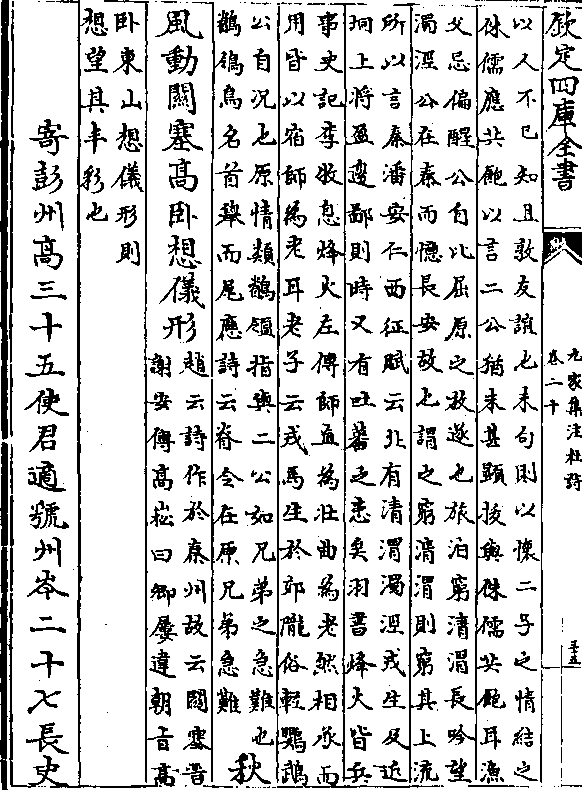 欽定四庫全書
九家集注杜詩
卷二十
以人不已知且敦友誼也末句則以懷二子之情結之
侏儒應共飽以言二公猶未甚顯拔與侏儒共飽耳漁
父忌偏醒公自比屈原之放逐也旅泊窮清渭長吟望
濁涇公在秦而憶長安故也謂之窮清渭則窮其上流
所以言秦潘安仁西征賦云北有清渭濁涇戎生及近
坰上將盈邊鄙則時又有吐蕃之患矣羽書烽火皆兵
事史記李牧急烽火左傳師直為壯曲為老然相承而
用皆以宿師為老耳老子云戎馬生於郊隴俗輕鸚鵡
公自況也原情類鶺鴒指與二公如兄弟之急難也
鶺鴒鳥名首舉而尾應詩云脊令在原兄弟急難
秋
風動關塞高卧想儀形
趙云詩作於秦州故云關塞晉
謝安傳高崧曰卿屢違朝旨高
卧東山想儀形則
想望其丰彩也
寄彭州高三十五使君適虢州岑二十七長史